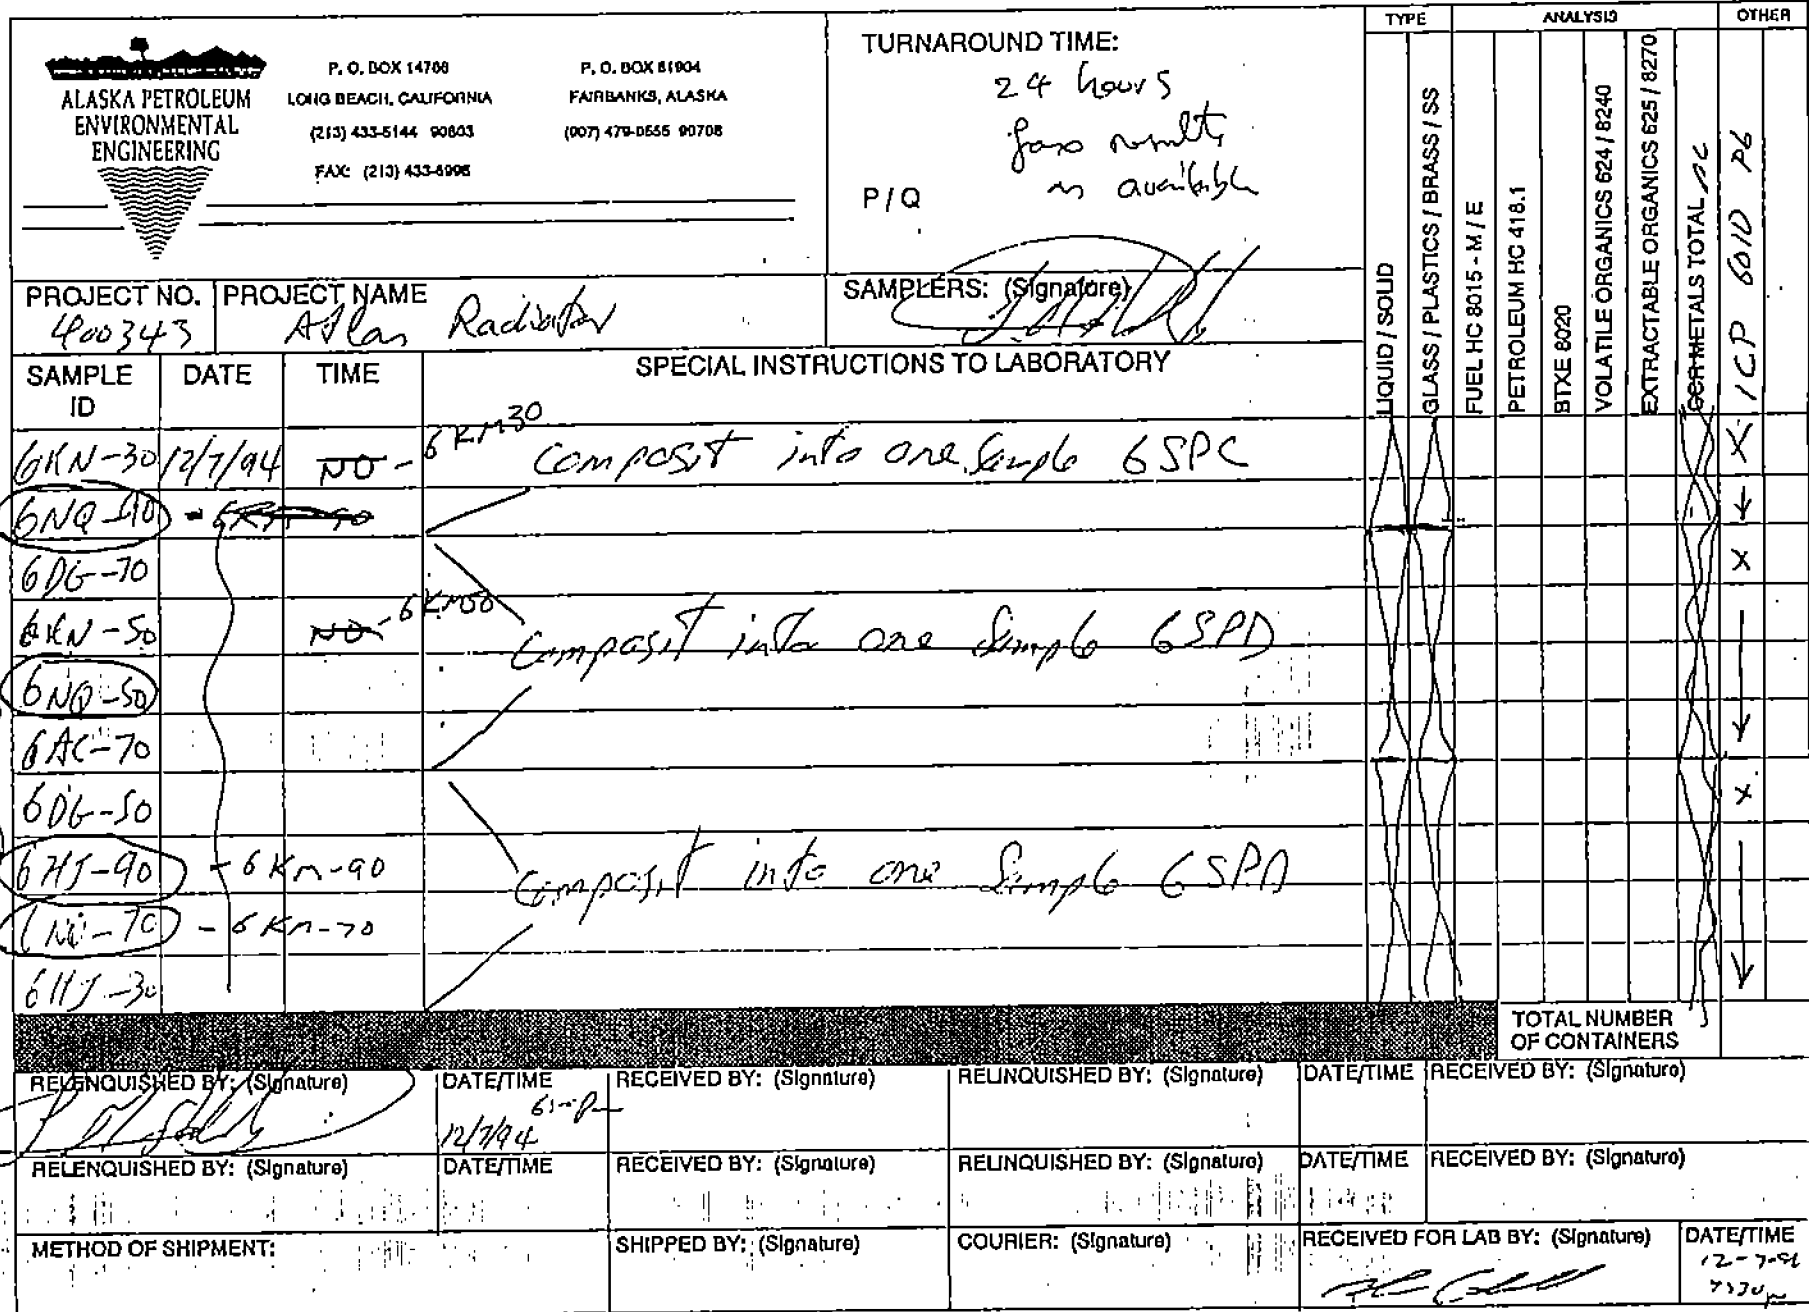 ALASKA PETROLEUM
ENVIRONMENTAL
ENGINEERING
P. O. BOX 14708
LONG BEACH, CALIFORNIA
(213) 433-5144 90803
FAX: (213) 433-6996
P. O. BOX 81904
FAIRBANKS, ALASKA
(907) 479-0555 99708
TURNAROUND TIME:
24 hours
results
as available
P / Q
TYPE
ANALYSIS
OTHER
LIQUID / SOLID
GLASS / PLASTICS / BRASS / SS
FUEL HC 8015 - M / E
PETROLEUM HC 418.1
BTXE 8020
VOLATILE ORGANICS 624 / 8240
EXTRACTABLE ORGANICS 625 / 8270
CCR METALS TOTAL
ICP 6010 Pb
PROJECT NO.
400343
PROJECT NAME
Atlas Radiator
SAMPLERS: (Signature)
SAMPLE ID
DATE
TIME
SPECIAL INSTRUCTIONS TO LABORATORY
6KN-30 12/7/94 NO - 6KM30 Composit into one Sample 6SPC X
6NQ- -
6DG-70 X
6KN-50 NO - Composit into one Sample 6SPD
6NQ-50
6AC-70
6DG-50 X
6HJ-90 - 6KM-90 Composit into one Sample 6SPA
-70 - 6KM-70
6HJ-30
TOTAL NUMBER
OF CONTAINERS
RELENQUISHED BY: (Signature)
DATE/TIME
12/7/94
RECEIVED BY: (Signature)
RELINQUISHED BY: (Signature)
DATE/TIME
RECEIVED BY: (Signature)
RELENQUISHED BY: (Signature)
DATE/TIME
RECEIVED BY: (Signature)
RELINQUISHED BY: (Signature)
DATE/TIME
RECEIVED BY: (Signature)
METHOD OF SHIPMENT:
SHIPPED BY: (Signature)
COURIER: (Signature)
RECEIVED FOR LAB BY: (Signature)
DATE/TIME